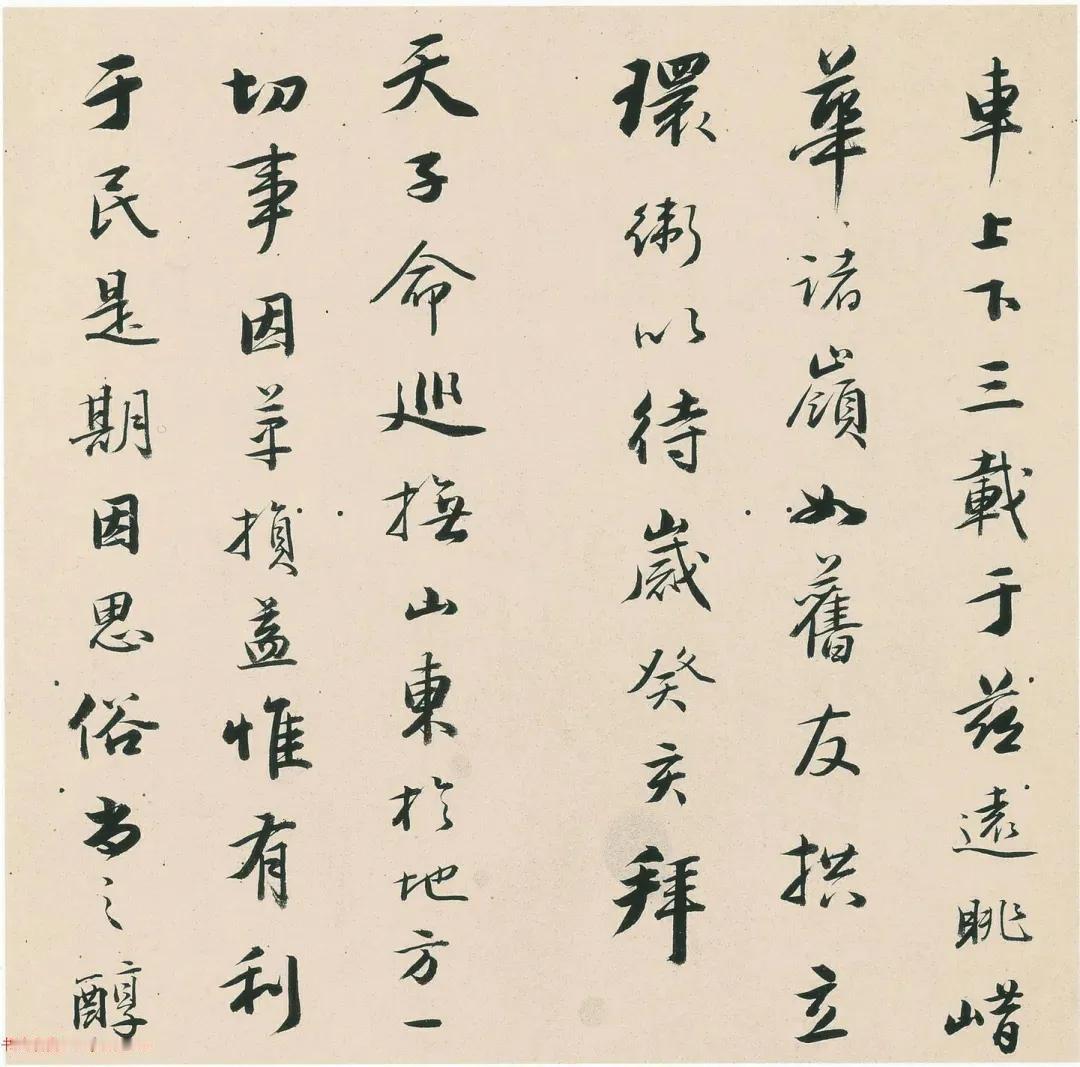 車上下三載于茲遠眺㟙
華諸嶺如舊友拱立
環衛以待歲癸亥拜
天子命巡撫山東於地方一
切事因革損益惟有利
于民是期因思俗尚之醇